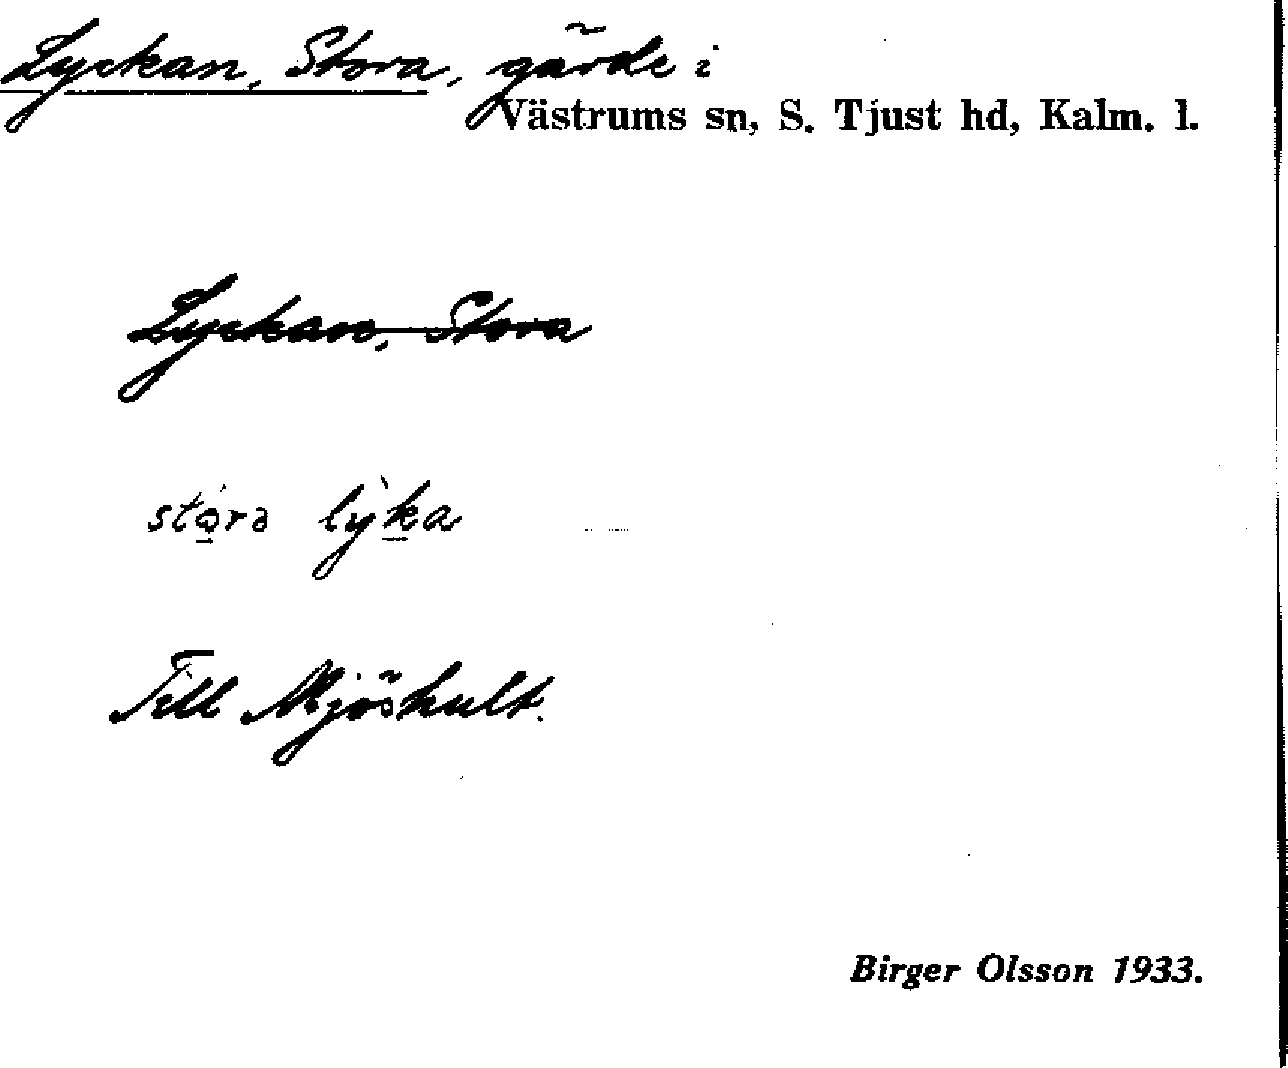 Lyckan, Stora, gärde i
Västrums sn, S. Tjust hd, Kalm. l.
Lyckan, Stora
stora lyka
Till Mjöshult.
Birger Olsson 1933.